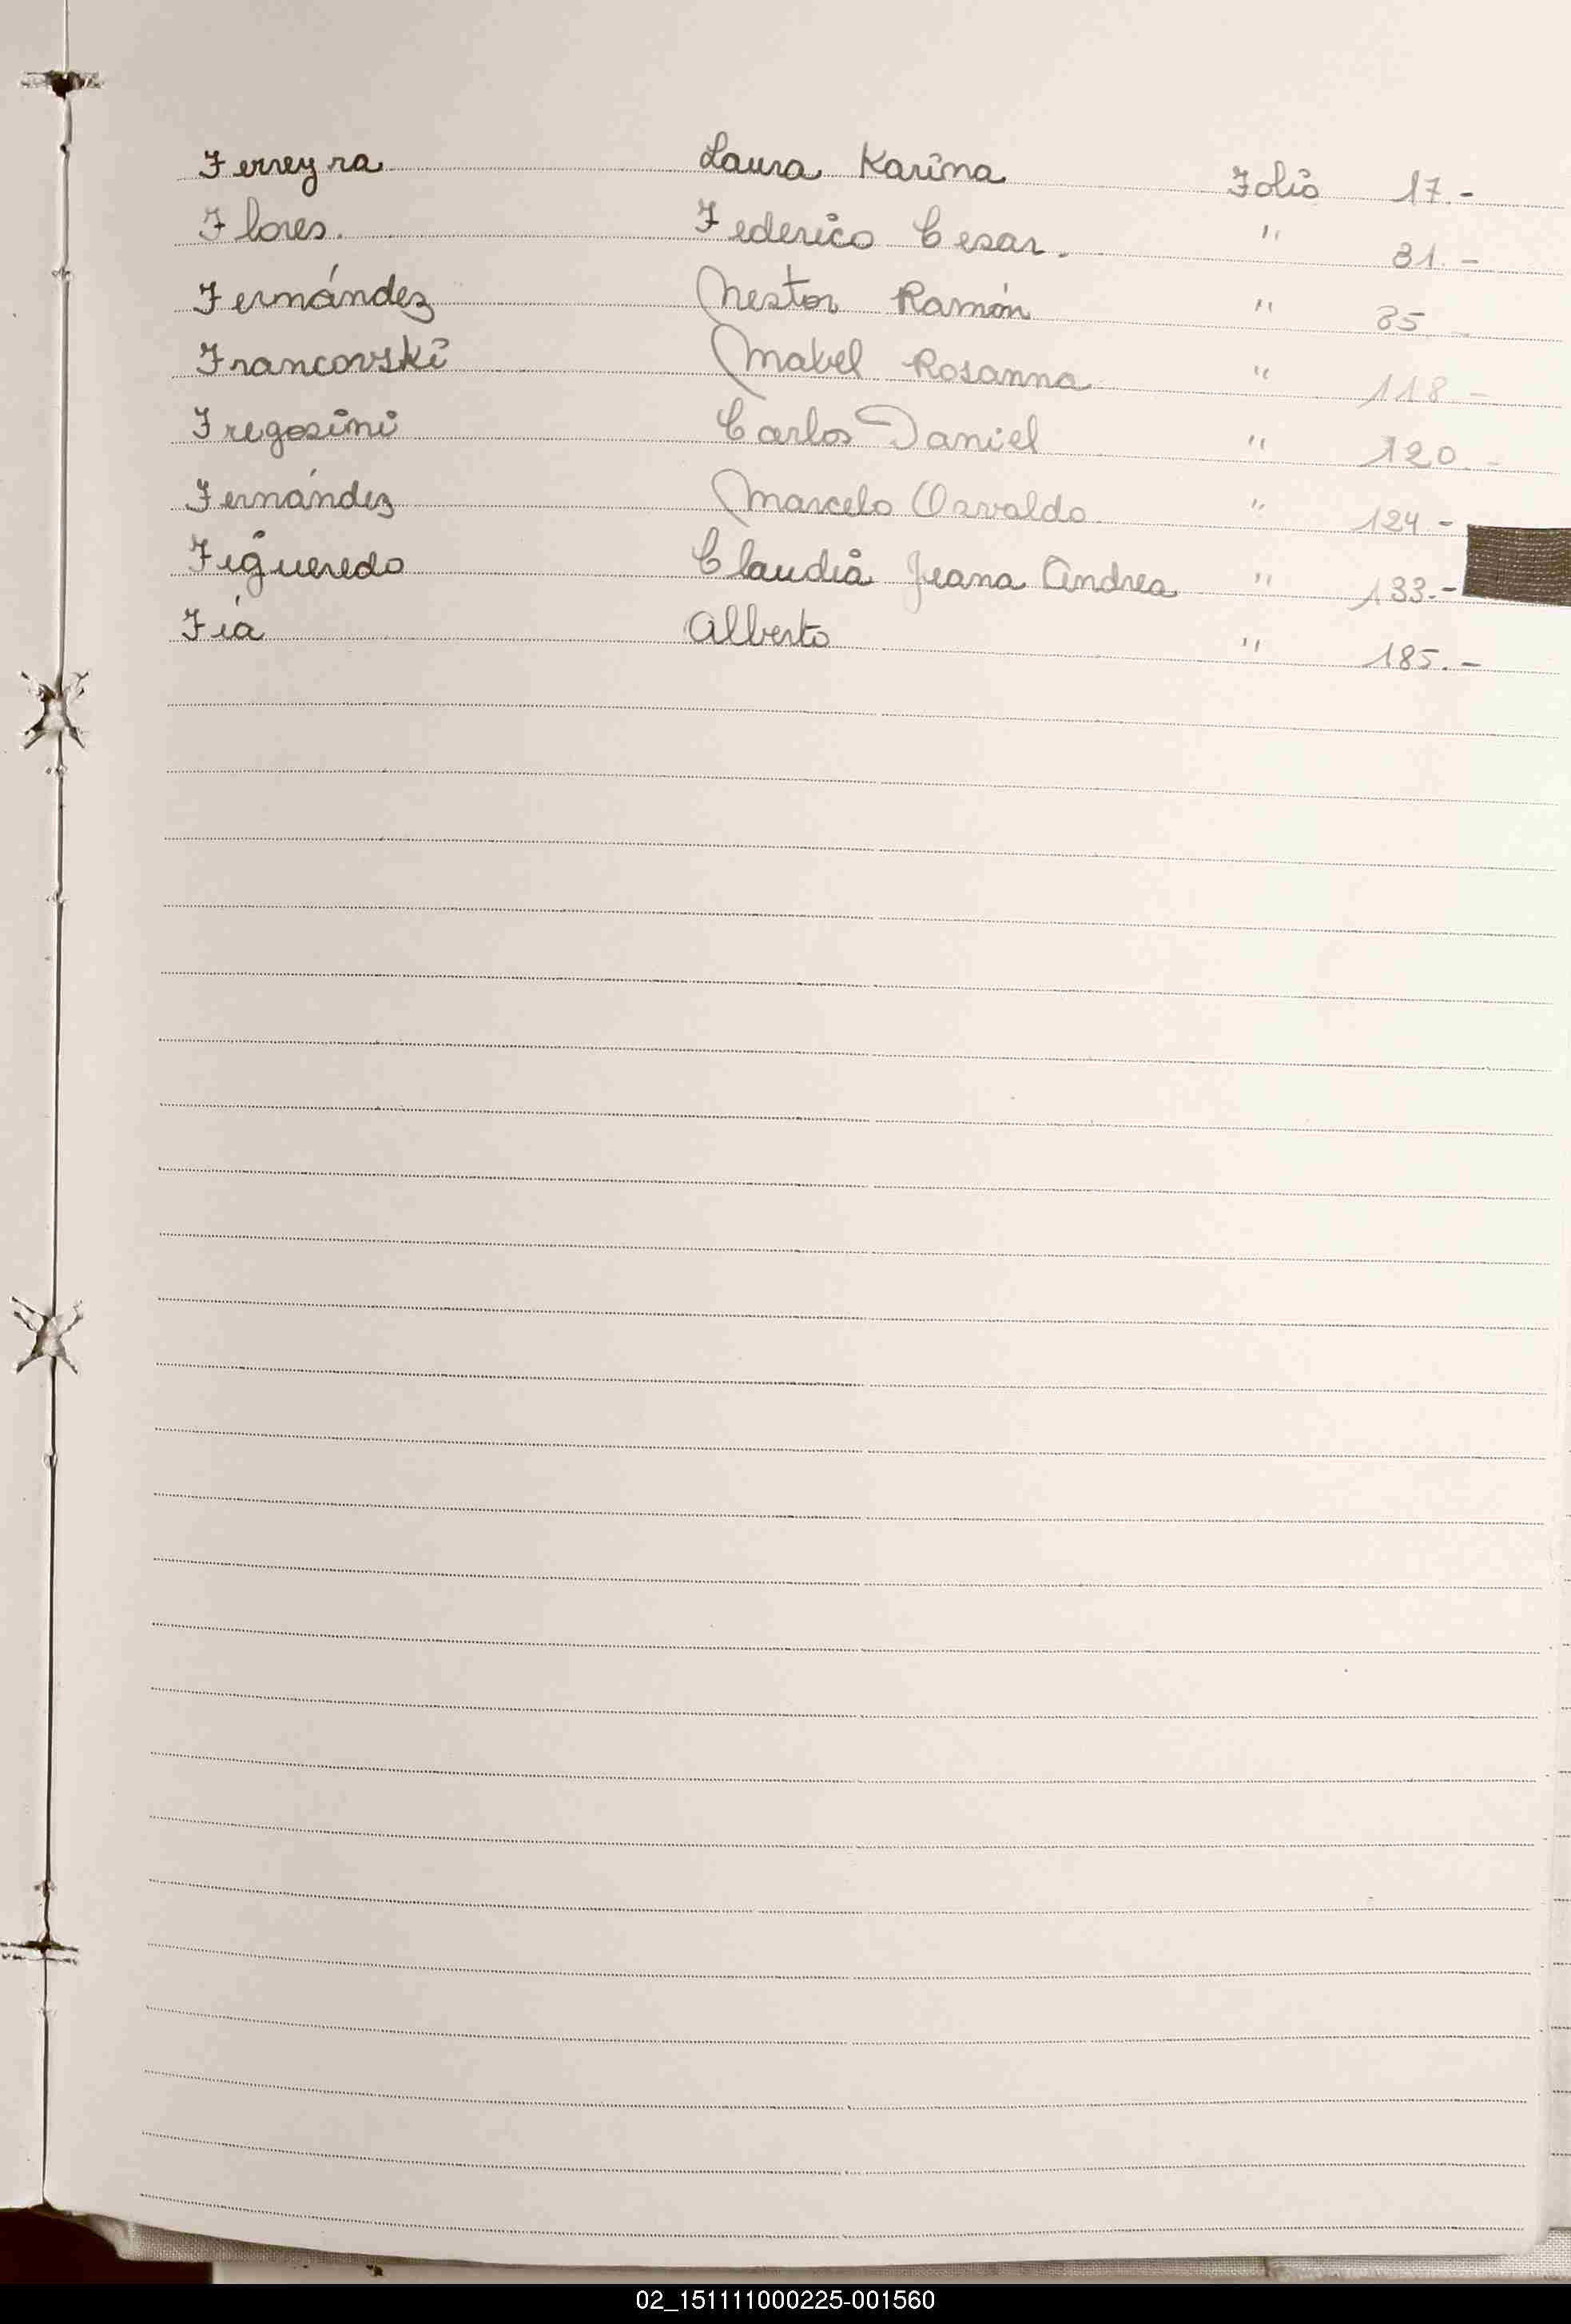 Ferreyra Laura Karina Folio 17.-
Flores. Federico Cesar. " 81.-
Fernández Nestor Ramón " 85 -
Francovski Mabel Rosanna " 118.-
Fregosini Carlos Daniel " 120.-
Fernández Marcelo Osvaldo " 124.-
Figueredo Claudia Juana Andrea " 133.-
Fiá Alberto " 185.-
02_151111000225-001560